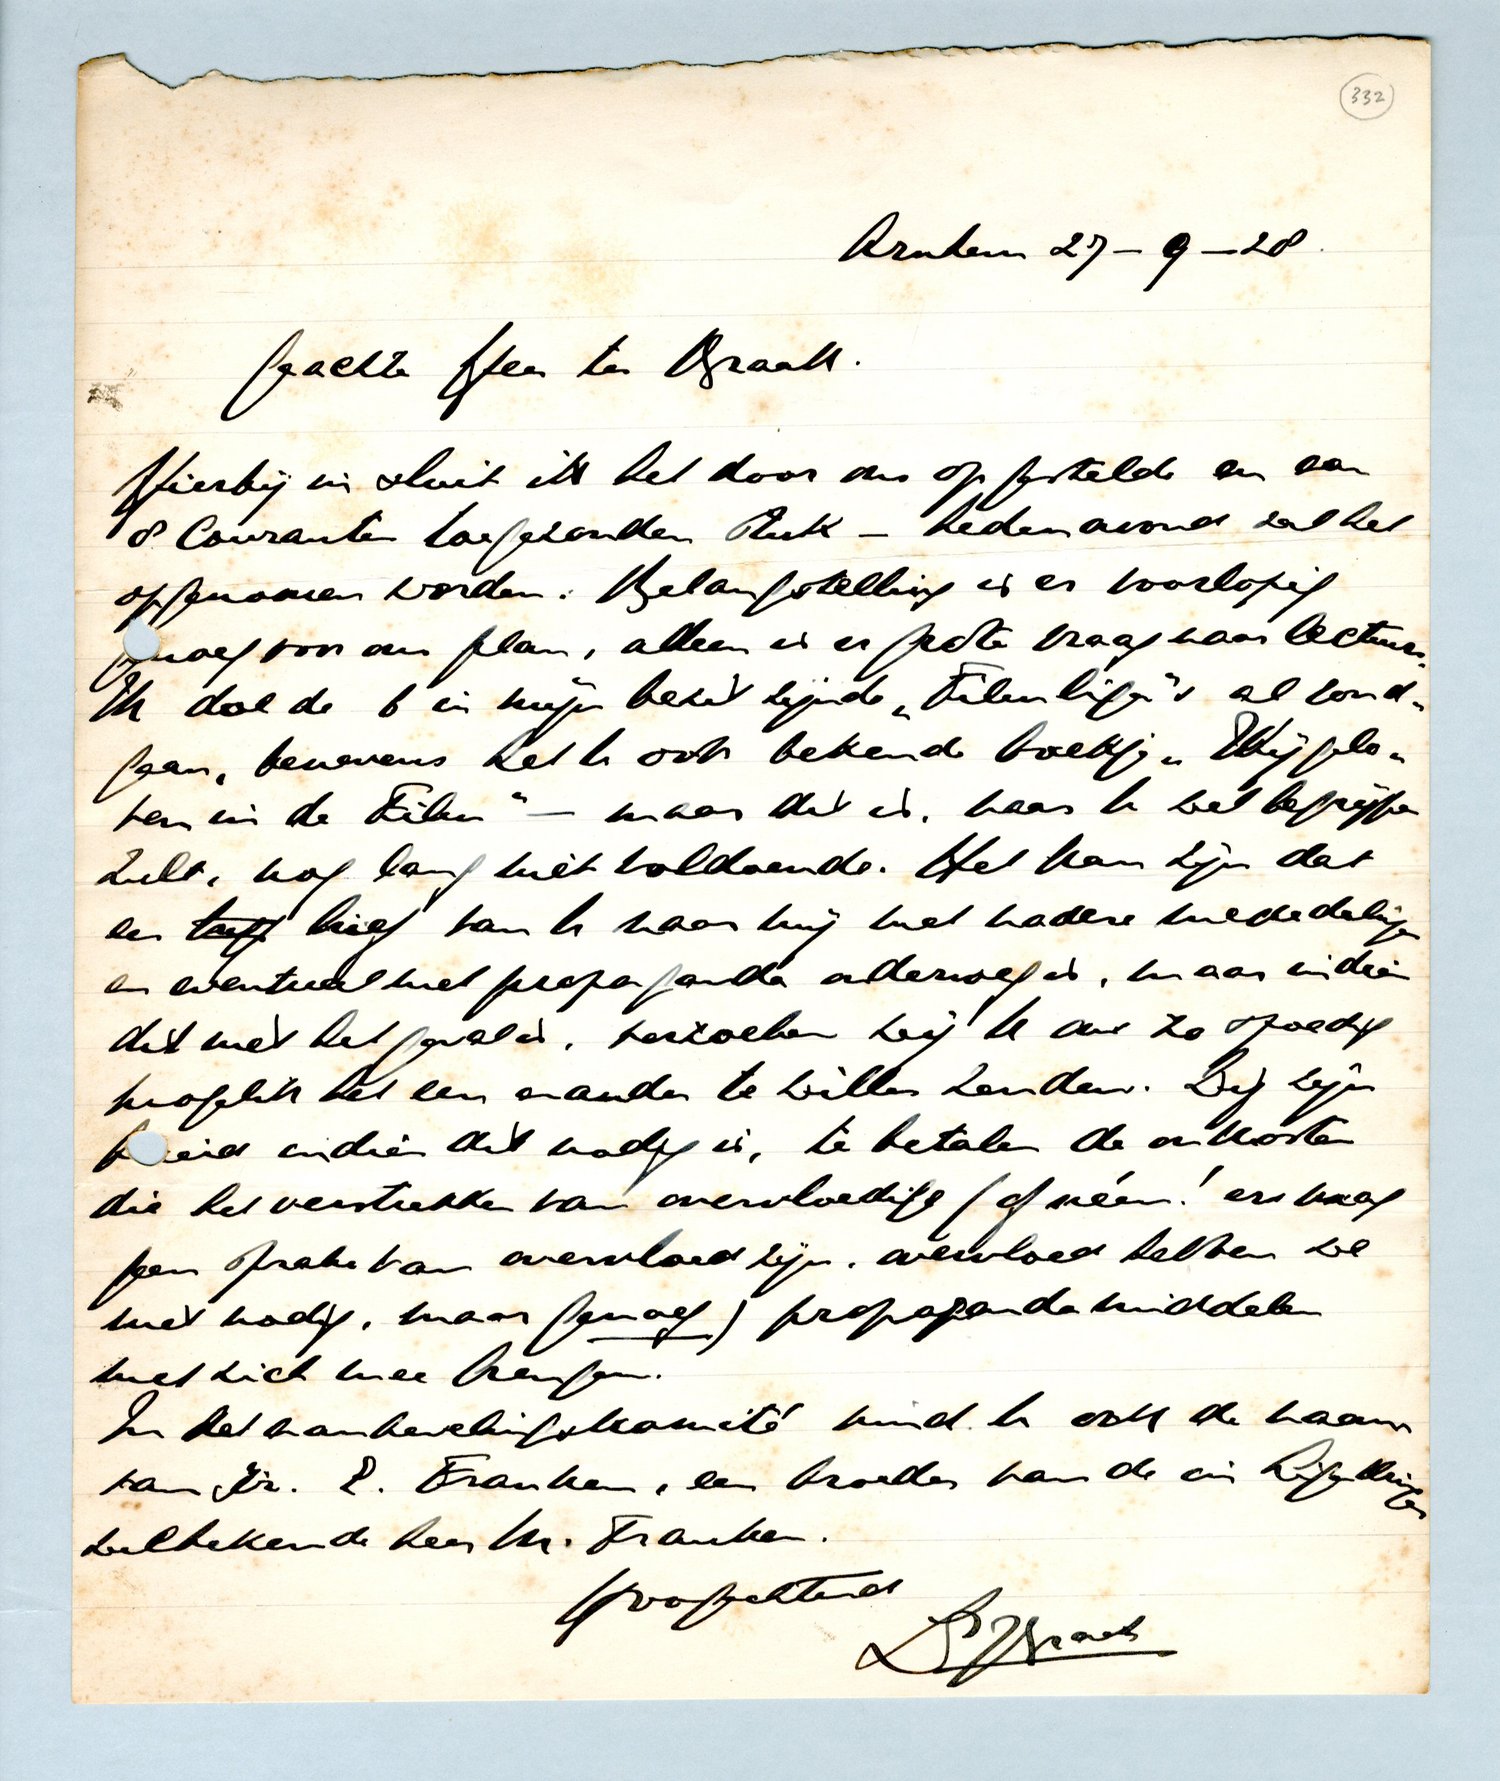 332
Arnhem 27-9-28.
Geachte Heer ter Braak.
Hierbij in sluit ik het door ons opgestelde en aan
8 Couranten toegezonden stuk – hedenavond zal het
opgenomen worden. Belangstelling is er voorlopig
genoeg voor ons plan, alleen is er grote vraag naar lectuur.
Ik doe de 6 in mijn bezit zijnde „Filmliga"s al rond-
gaan, benevens het U ook bekende boekje „Wij gelo-
ven in de Film" – maar dit is, naar U wel begrijpen
zult, nog lang niet voldoende. Het kan zijn dat
een brief van U naar mij met nadere mededelingen
en eventueel met propaganda onderweg is, maar indien
dit niet het geval is, verzoeken wij U ons zo spoedig
mogelik het een en ander te willen zenden. Wij zijn
bereid indien dit nodig is, te betalen de onkosten
die het verstrekken van overvloedige (of néén! er mag
geen sprake van overvloed zijn. overvloed hebben we
niet nodig, maar genoeg) propagandamiddelen
met zich mee brengen.
In het aanbevelingskomité vindt U ook de naam
van Dr. E. Franken, een broeder van de in Ligakringen
welbekende heer M. Franken.
Hoogachtend